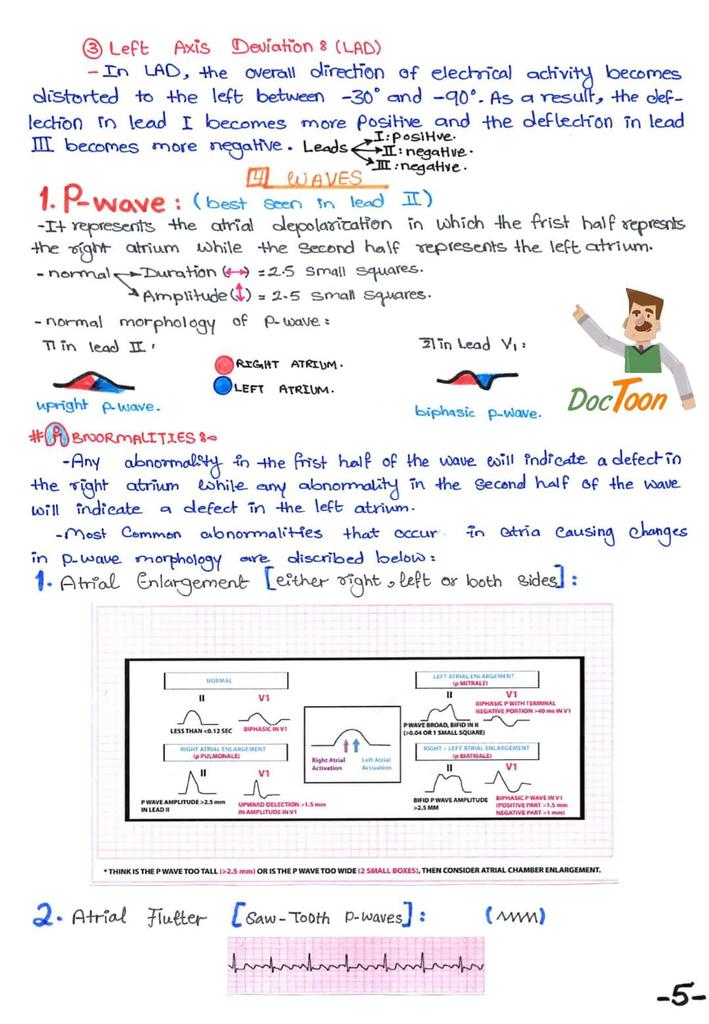 ③ Left Axis Deviation: (LAD)
- In LAD, the overall direction of electrical activity becomes
distorted to the left between -30° and -90°. As a result, the def-
lection in lead I becomes more positive and the deflection in lead
III becomes more negative. Leads
I: positive.
II: negative.
III: negative.
4 WAVES
1. P-wave: (best seen in lead II)
-It represents the atrial depolarization in which the frist half represnts
the right atrium while the second half represents the left atrium.
- normal Duration (↔) = 2.5 small squares.
Amplitude (↕) = 2.5 small squares.
- normal morphology of p-wave:
1] in lead II:
2] in Lead V1:
RIGHT ATRIUM.
LEFT ATRIUM.
upright p-wave.
biphasic p-wave.
DocToon
# ABNORMALITIES:-
-Any abnormality in the frist half of the wave will indicate a defect in
the right atrium while any abnormality in the second half of the wave
will indicate a defect in the left atrium.
-Most Common abnormalities that occur in atria causing changes
in p-wave morphology are discribed below:
1. Atrial Enlargement [either right, left or both sides]:
NORMAL
II V1
LESS THAN <0.12 SEC BIPHASIC IN V1
RIGHT ATRIAL ENLARGEMENT
(p PULMONALE)
II V1
P WAVE AMPLITUDE >2.5 mm
IN LEAD II
UPWARD DELECTION >1.5 mm
IN AMPLITUDE IN V1
Right Atrial
Activation
Left Atrial
Activation
LEFT ATRIAL ENLARGEMENT
(p MITRALE)
II V1
BIPHASIC P WITH TERMINAL
NEGATIVE PORTION >40 ms IN V1
P WAVE BROAD, BIFID IN II
(>0.04 OR 1 SMALL SQUARE)
RIGHT + LEFT ATRIAL ENLARGEMENT
(p BIATRIALE)
II V1
BIFID P WAVE AMPLITUDE
>2.5 MM
BIPHASIC P WAVE IN V1
(POSITIVE PART >1.5 mm
NEGATIVE PART >1 mm)
* THINK IS THE P WAVE TOO TALL (>2.5 mm) OR IS THE P WAVE TOO WIDE (2 SMALL BOXES), THEN CONSIDER ATRIAL CHAMBER ENLARGEMENT.
2. Atrial Flutter [Saw-Tooth p-waves]:
-5-